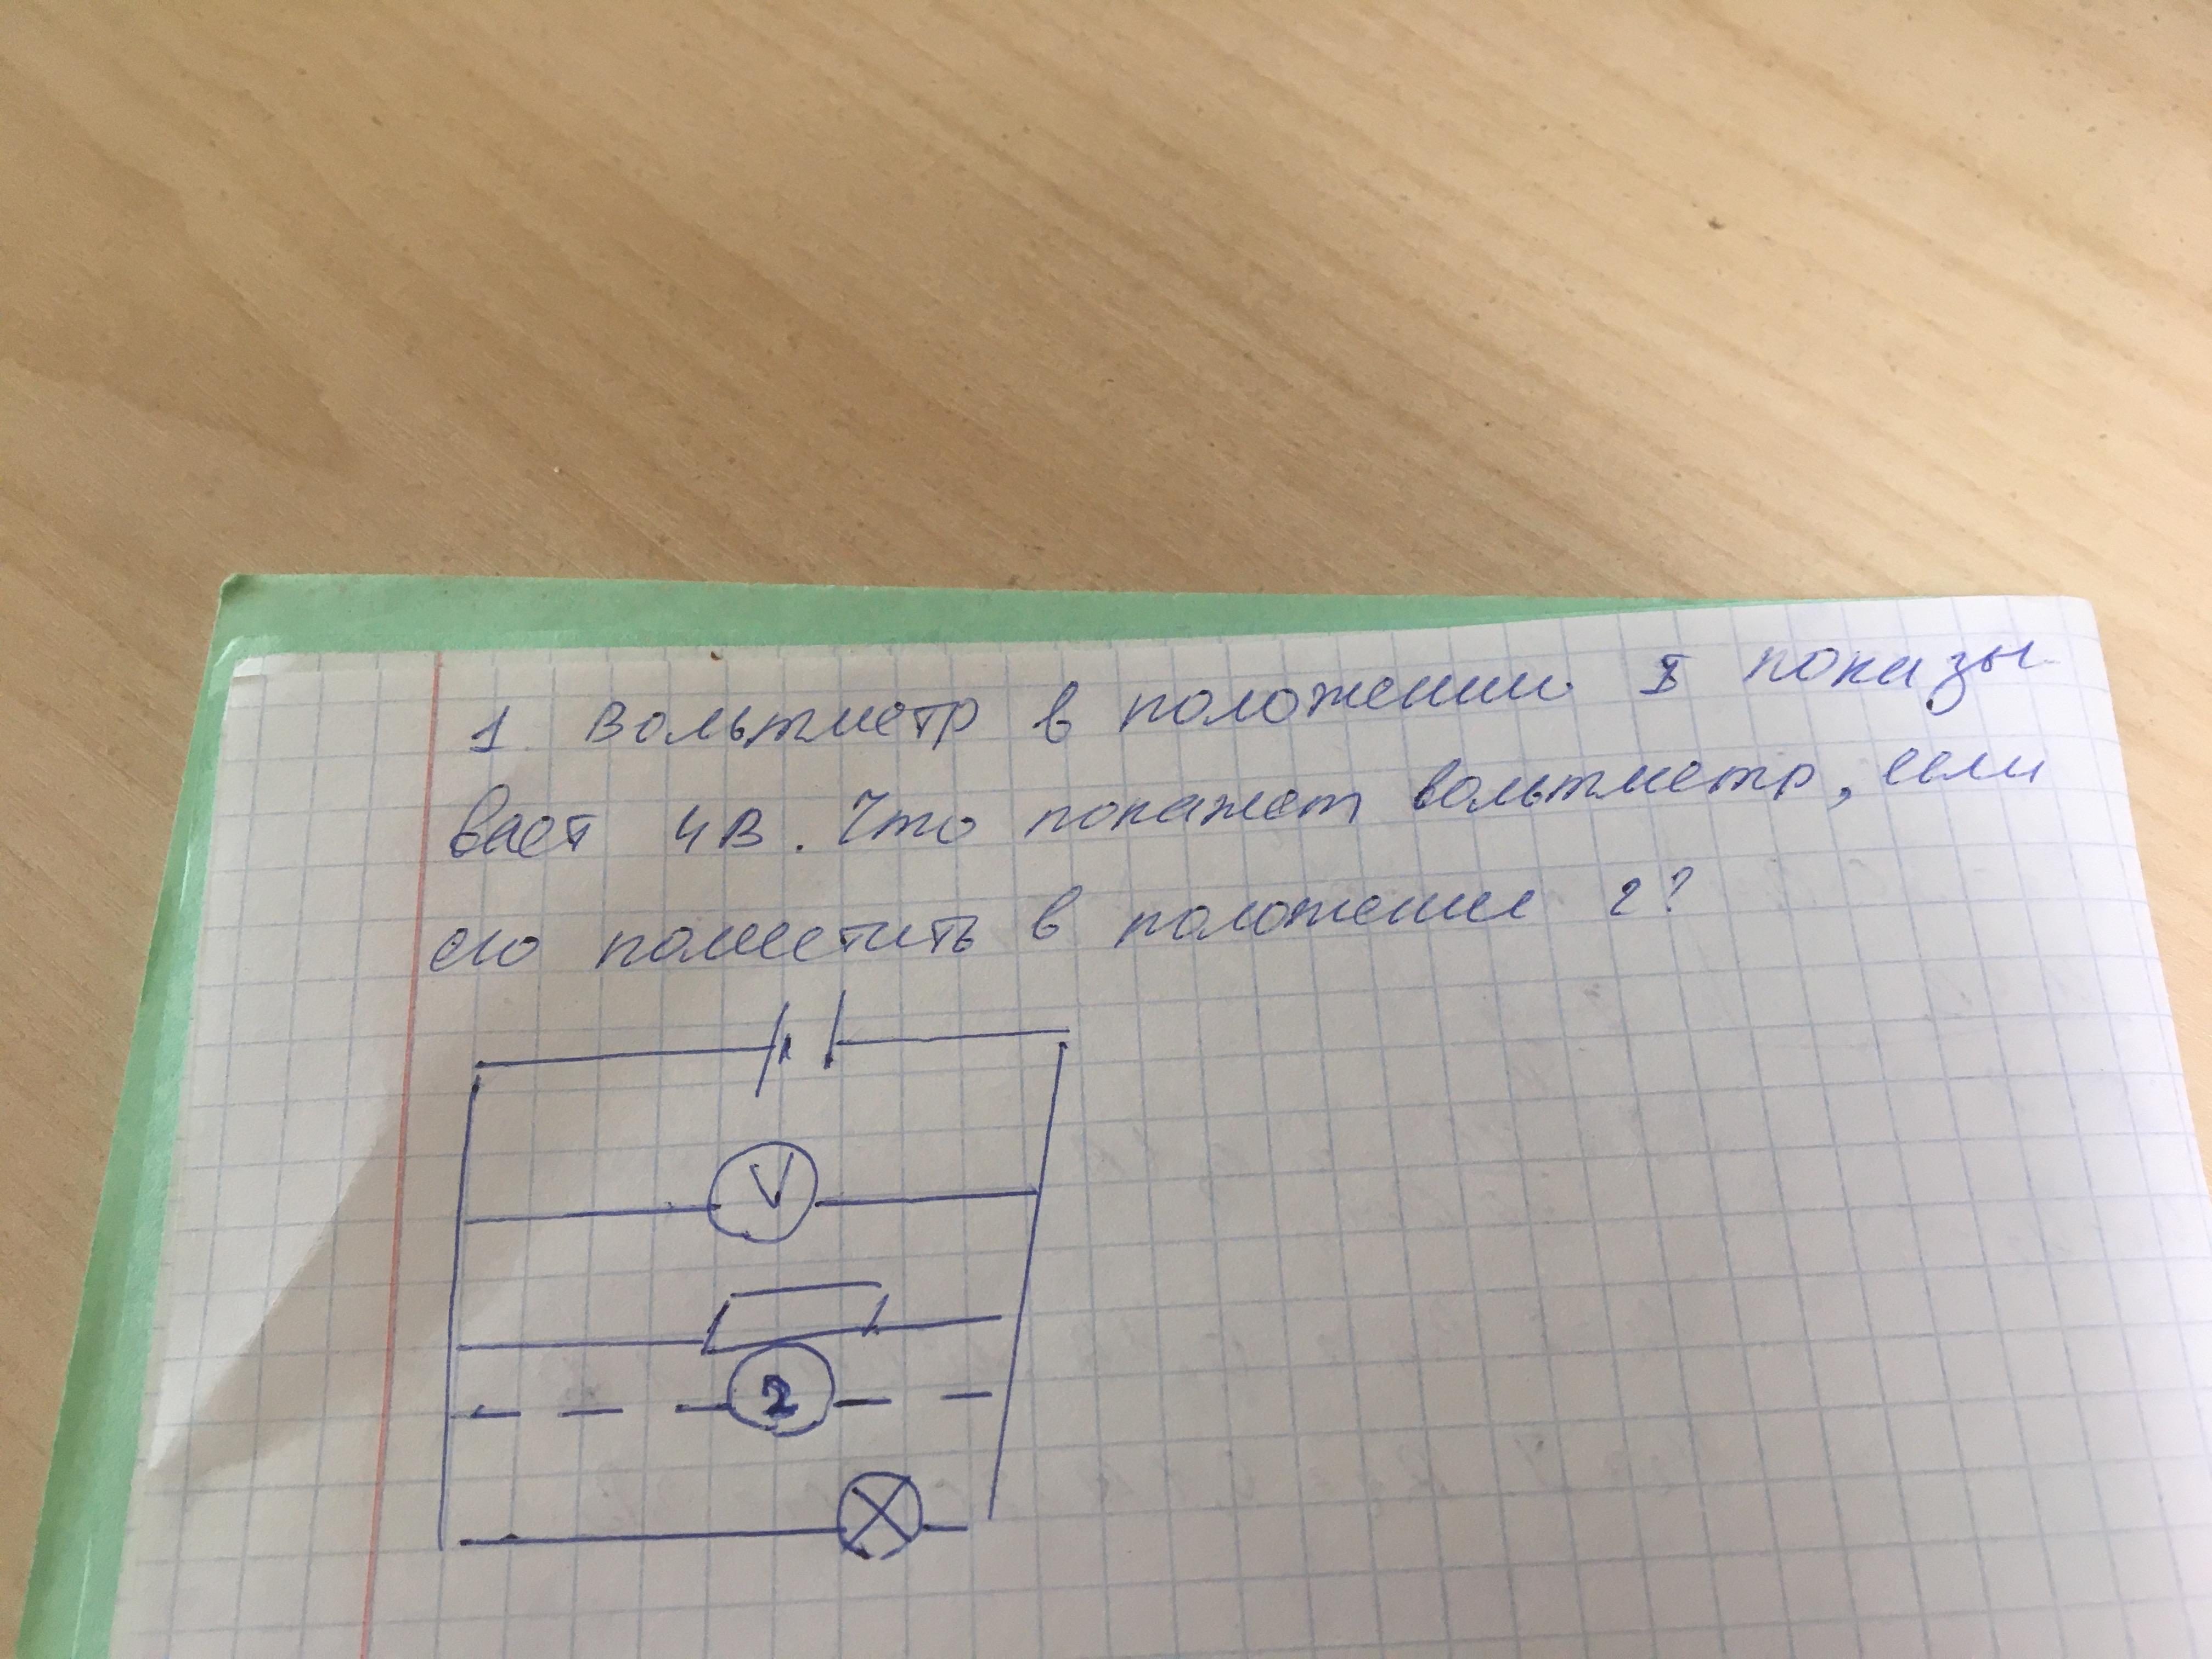 1. Вольтметр в положении I показы-
вает 4В. Что покажет вольтметр, если
его поместить в положение 2?
V
2